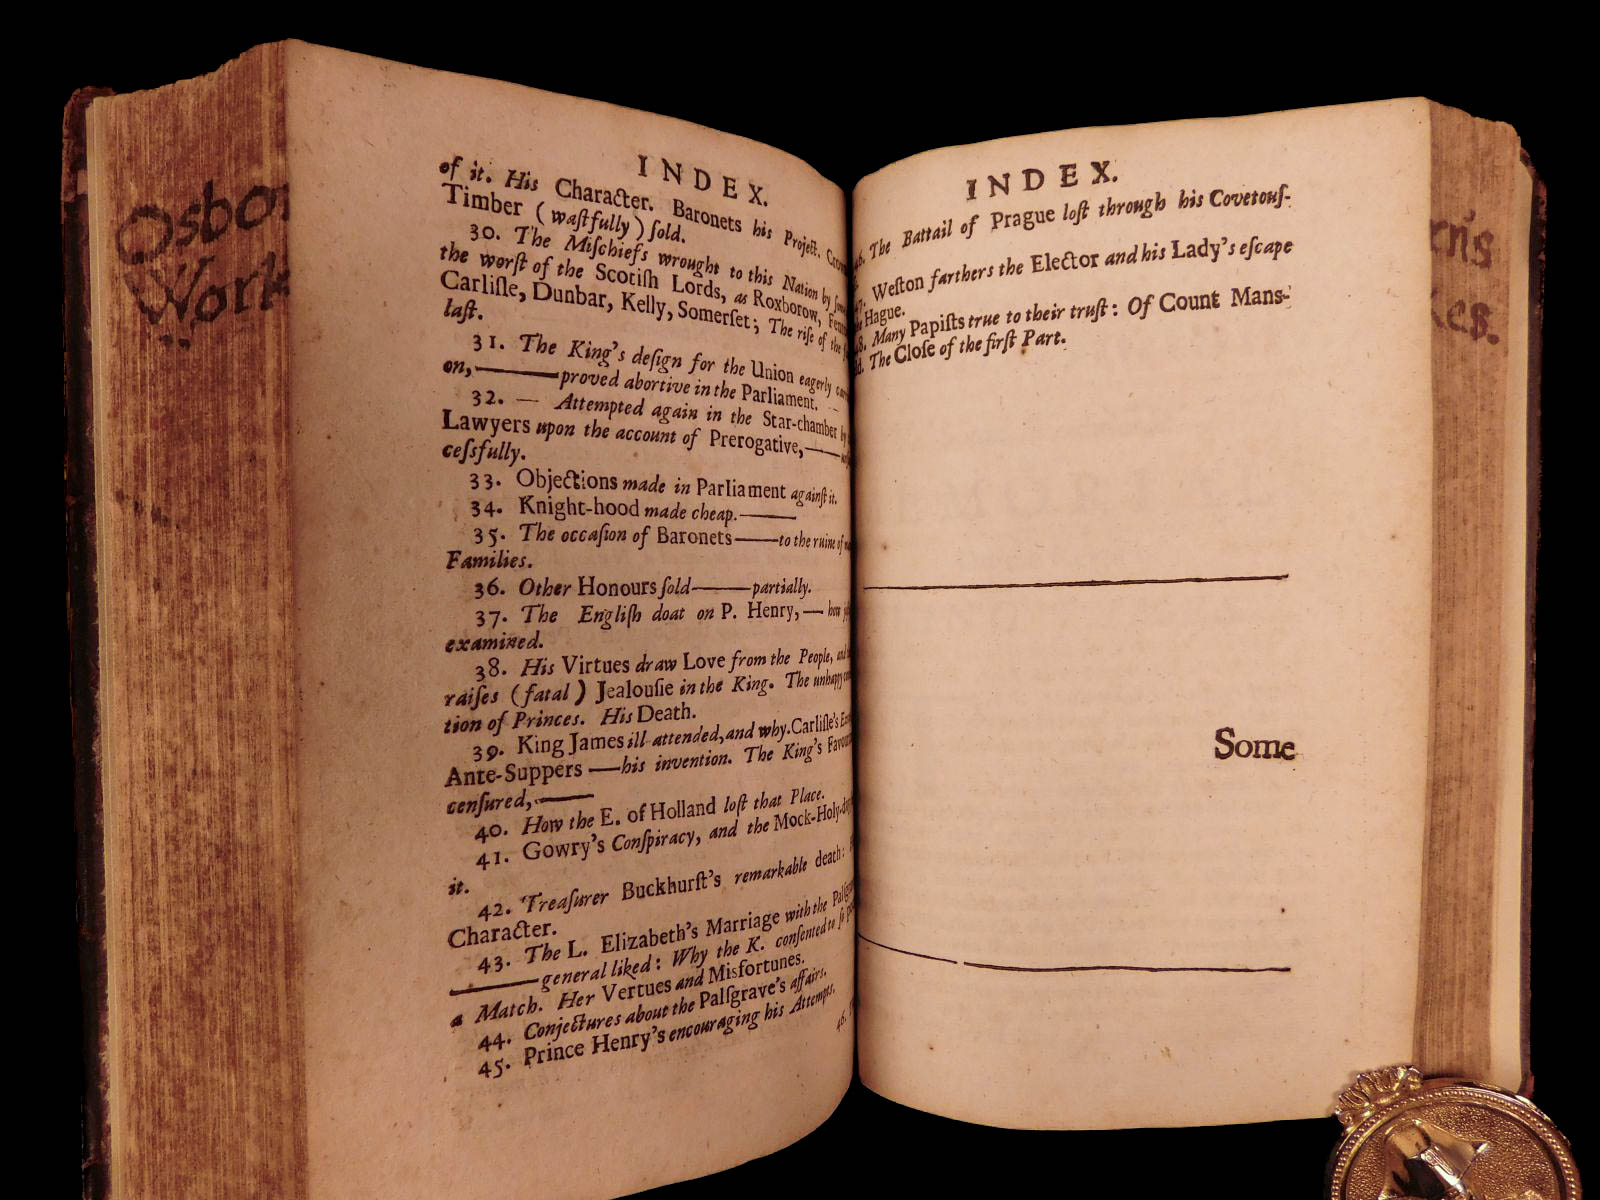 INDEX.
of it. His Character. Baronets his Project. Crown
Timber ( waſtfully ) ſold.
30. The Miſchiefs wrought to this Nation by
the worſt of the Scotiſh Lords, as Roxborow,
Carliſle, Dunbar, Kelly, Somerſet; The riſe of the
laſt.
31. The King's deſign for the Union eagerly
on,——proved abortive in the Parliament.
32. — Attempted again in the Star-chamber by
Lawyers upon the account of Prerogative,——
ceſsfully.
33. Objections made in Parliament againſt it.
34. Knight-hood made cheap.——
35. The occaſion of Baronets——to the ruine of
Families.
36. Other Honours ſold——partially.
37. The Engliſh doat on P. Henry,— how
examined.
38. His Virtues draw Love from the People, and
raiſes ( fatal ) Jealouſie in the King. The unhappy
tion of Princes. His Death.
39. King James ill attended, and why. Carliſle's
Ante-Suppers ——his invention. The King's
cenſured,——
40. How the E. of Holland loſt that Place.
41. Gowry's Conſpiracy, and the Mock-Holy-day
it.
42. Treaſurer Buckhurſt's remarkable death:
Character.
43. The L. Elizabeth's Marriage with the
——general liked: Why the K. conſented to ſo
a Match. Her Vertues and Misfortunes.
44. Conjectures about the Palſgrave's affairs.
45. Prince Henry's encouraging his Attempts.
46.
INDEX.
46. The Battail of Prague loſt through his Covetouſ-
Weſton farthers the Elector and his Lady's eſcape
Hague.
Many Papiſts true to their truſt: Of Count Mans-
The Cloſe of the firſt Part.
Some
Osborn's
Workes.